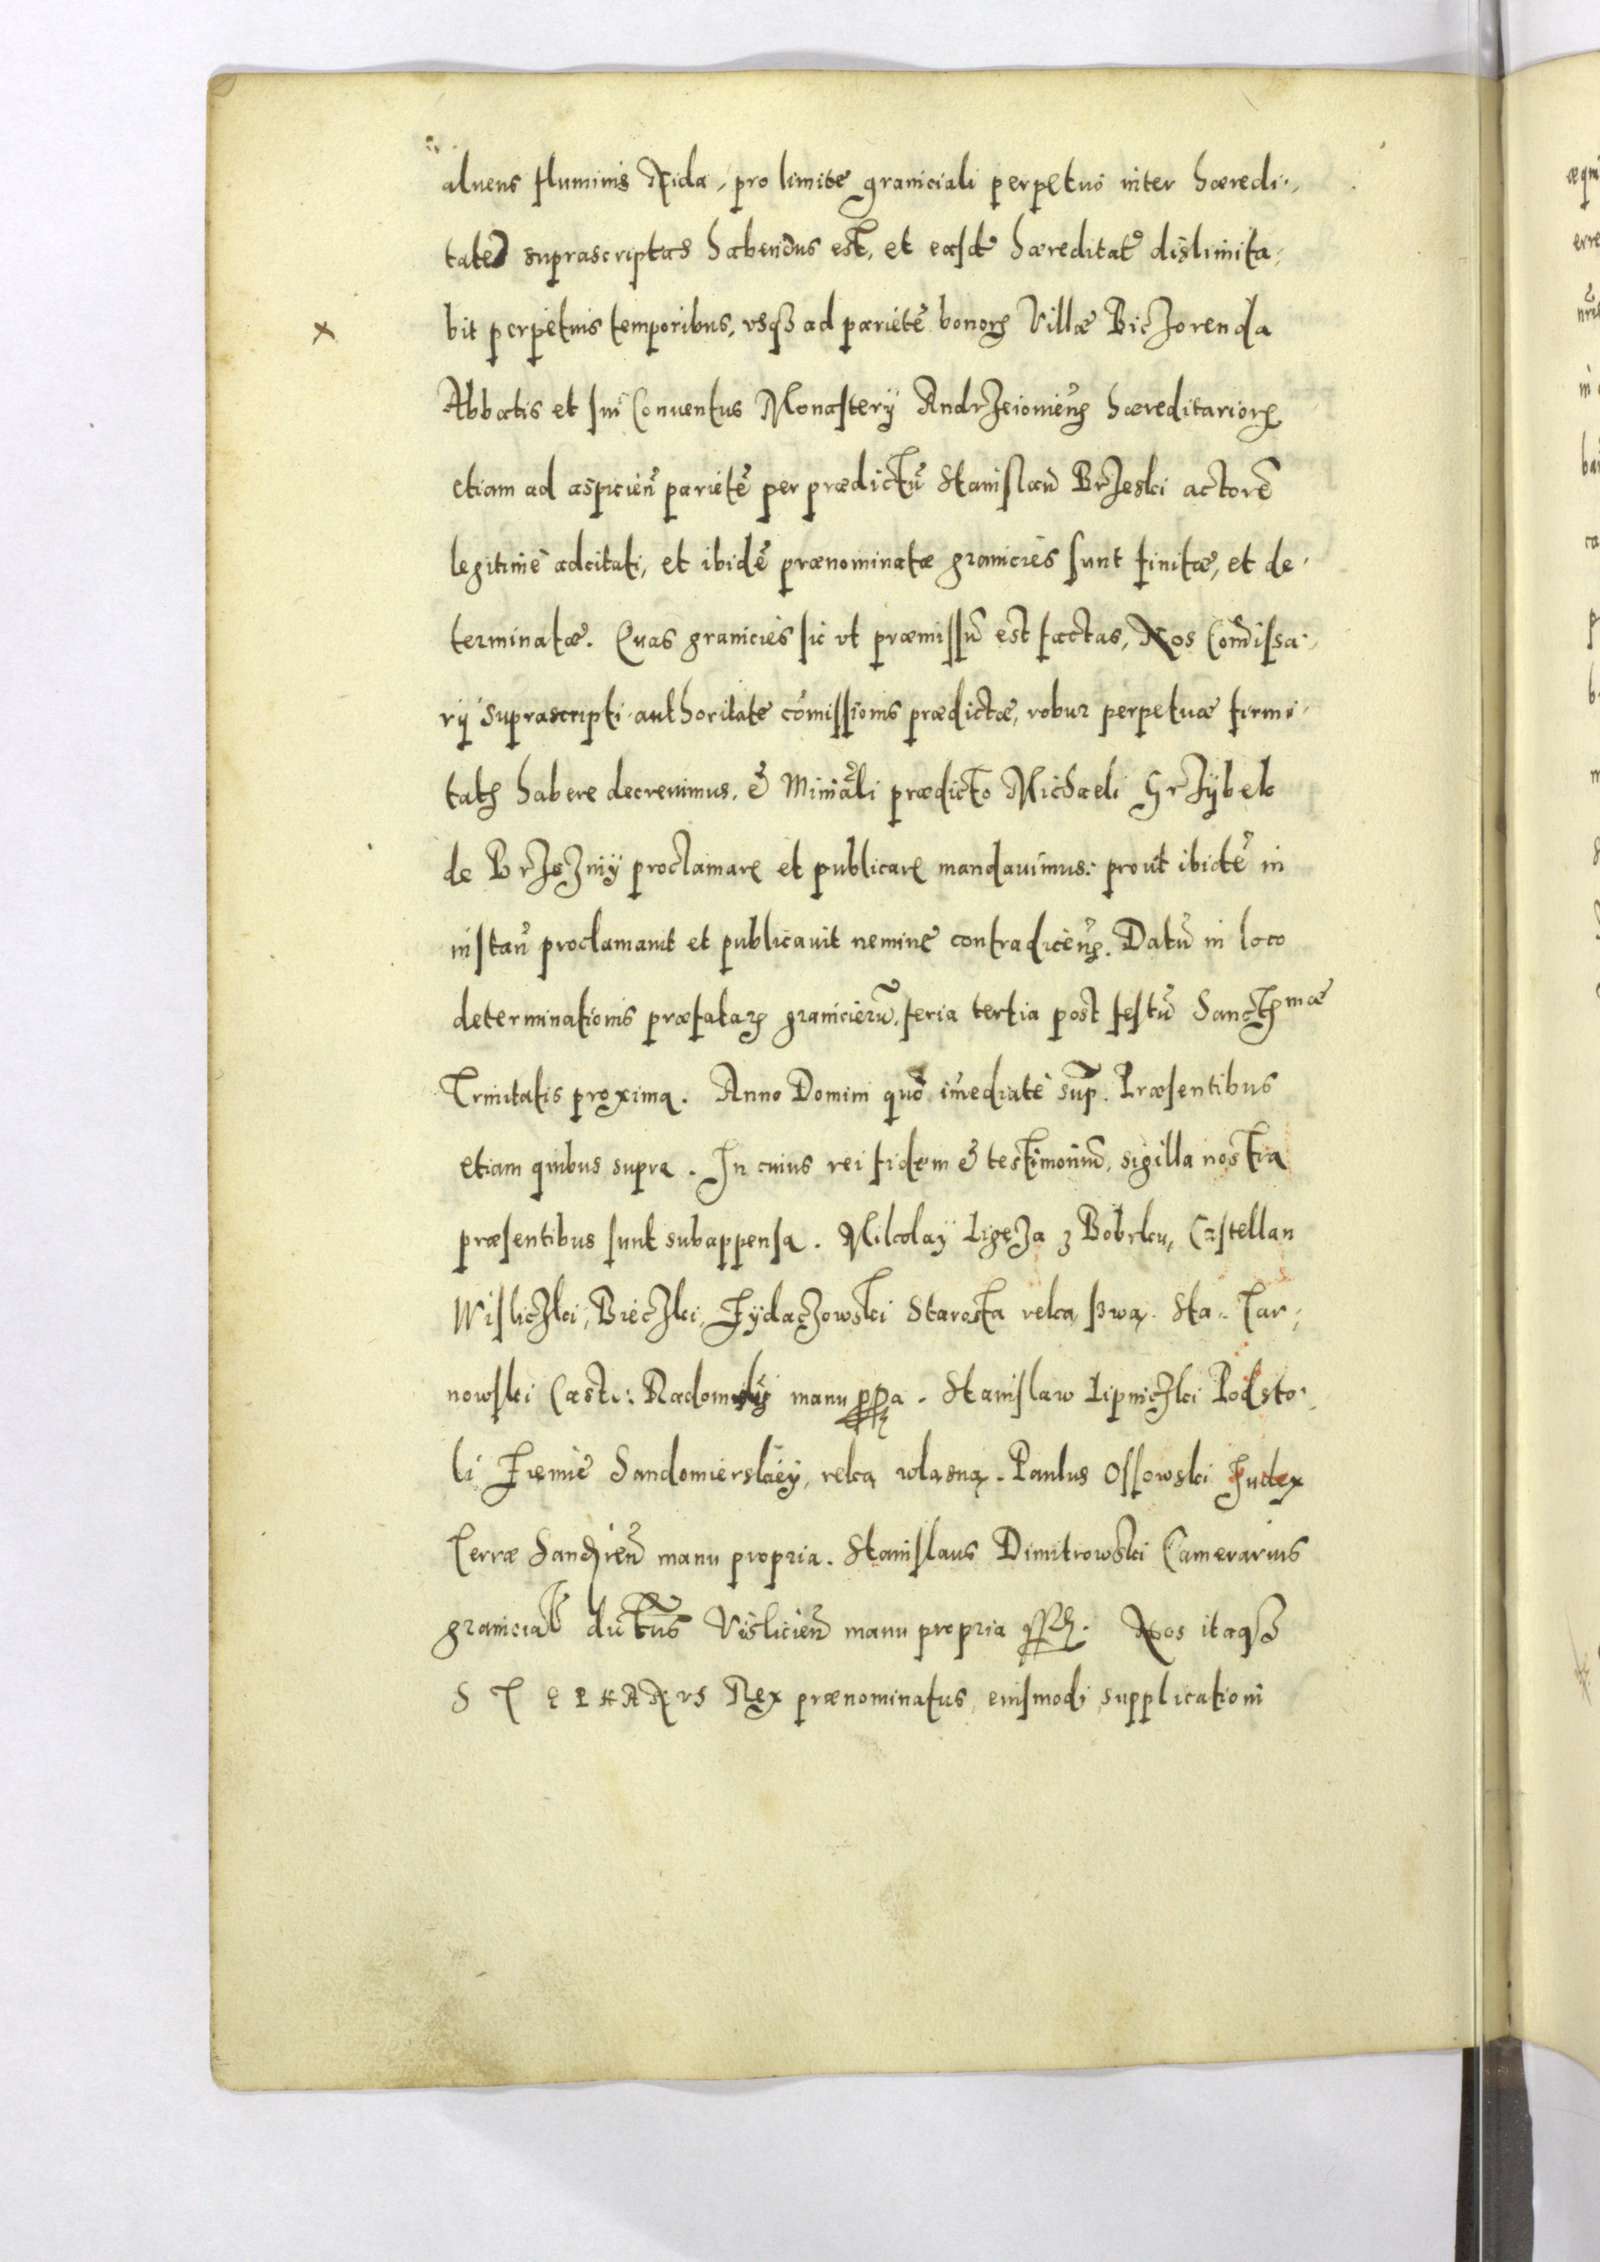 alueus fluminis Nida, pro limite graniciali perpetuò inter hæredi-
tates suprascriptas habendus est, et easdẽ hæreditatẽ dislimita-
bit perpetuis temporibus, vsq3 ad parietẽ bonorꝝ Villæ Biczorenda
Abbatis et sui Conuentus Monasterÿ Andrzeiouien̄ hæreditariorꝝ
etiam ad aspicien̄ parietẽ per prædictũ Stanislaũ Brzeski actorẽ
legitimè adcitati, et ibidẽ prænominatæ granicies sunt finitæ, et de-
terminatæ. Quas granicies sic vt præmissũ est factas, Nos Com̃issa-
rÿ suprascripti authoritate com̃issionis prædictæ, robur perpetuæ firmi-
tatꝭ habere decreuimus, & Minr̃ali prædicto Michaeli Grzÿbek
de Brzeznÿ proclamarꝫ et publicarꝫ mandauimus: prout ibidẽ in
instañ proclamauit et publicauit nemine contradiceñ. Datũ in loco
determinationis præfatarꝝ granicierũ, feria tertia post festũ Sanctꝭmæ
Trinitatis proxima. Anno Domini quõ im̃ediatè sup̃. Præsentibus
etiam quibus supra. In cuius rei fidem & testimoniũ, sigilla nostra
præsentibus sunt subappensa. Mikolaÿ Ligęza z Bobrku, Castellan
Wisliczki, Bieczki, Zÿdaczowski Starosta ręką swą. Sta. Tar-
nowski Cast: Radom manu ppa. Stanislaw Lipniczki Podsto-
li Ziemie Sandomierskiéy, ręką wlasną. Paulus Ossowski Iudex
Terræ Sandꝭieñ manu propria. Stanislaus Dimitrowski Camerarius
granicial' Visliciẽn manu propria Nos itaq3
STEPHANVS Rex prænominatus eiusmodi supplicationi